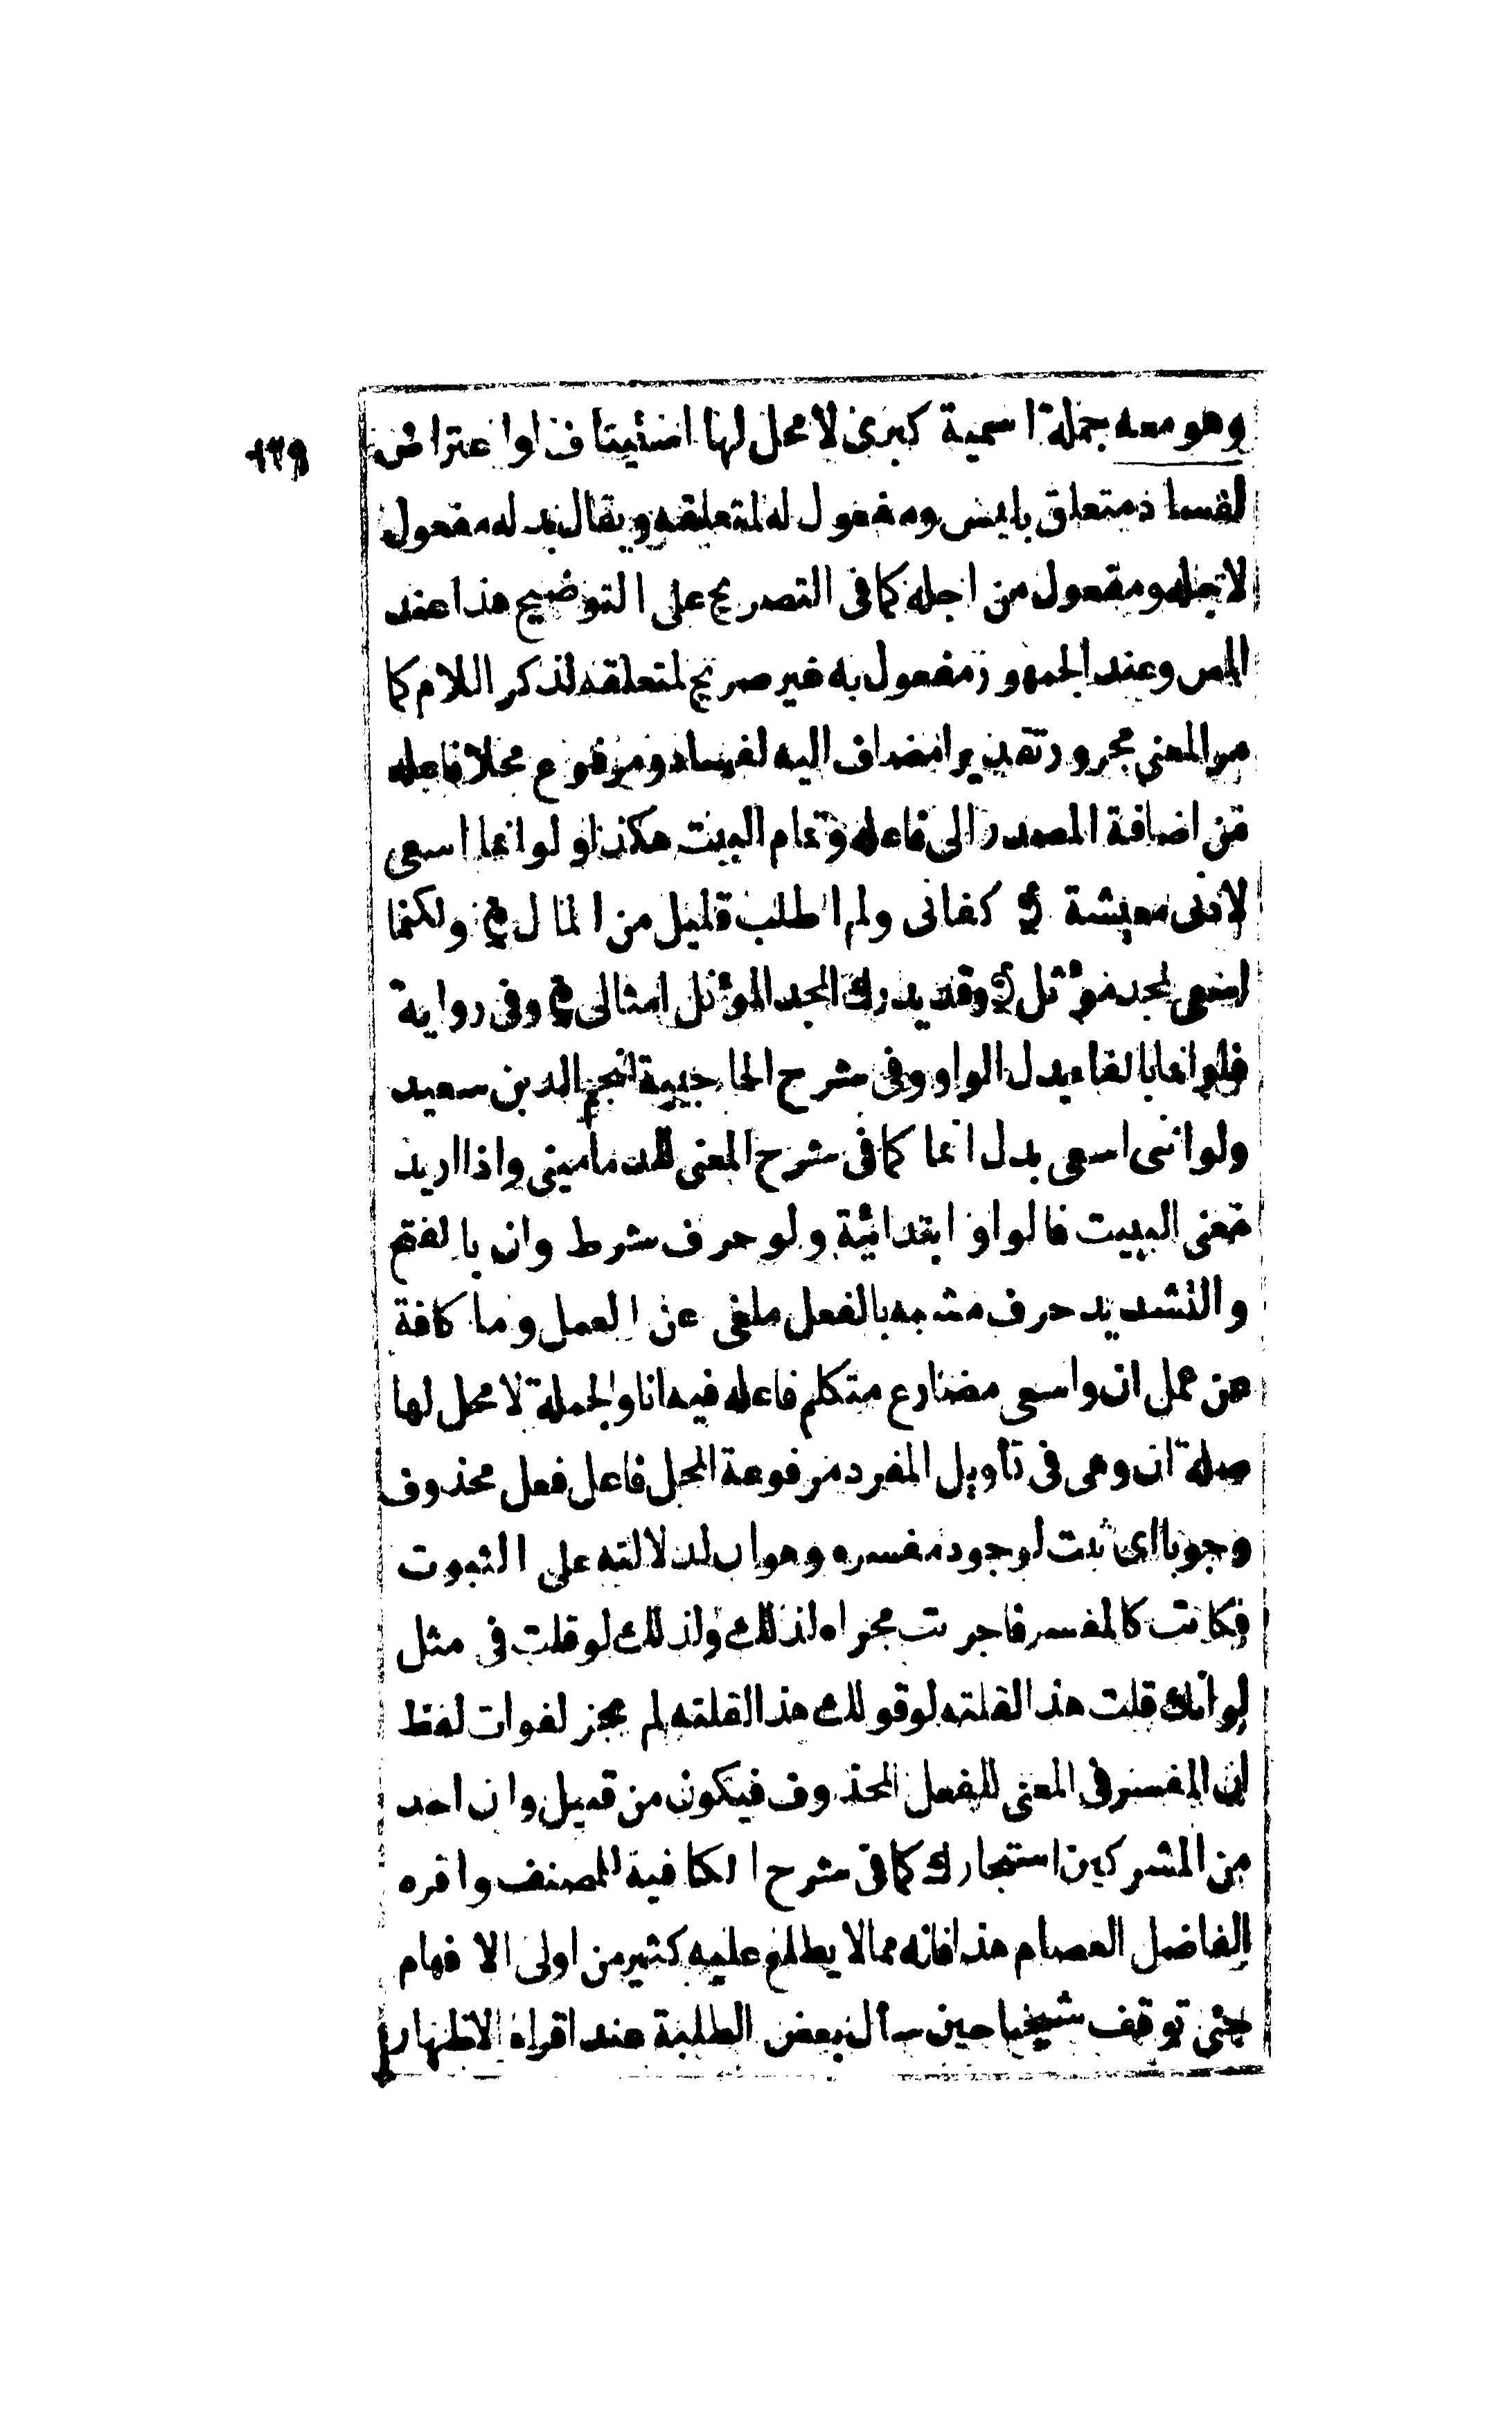 وهو معه جملة اسمية كبرى لا محل لها استئيناف او اعتراض
لفساد متعلق بليس ومفعول له لمتعلقه ويقال بدله مفعول
لاجله ومفعول من اجله كما فى التصريح على التوضيح هذا عند
المص وعند الجمهور مفعول به غير صريح لمتعلقه لذكر اللام كما
مر المعنى مجرور تقديرا مضاف اليه لفساد ومرفوع محلا فاعله
من اضافة المصدر الى فاعله وتمام البيت هكذا ولو انما اسعى
لادنى معيشة كفانى ولم اطلب قليل من المال ولكنما
اسعى لمجد مؤثل وقد يدرك المجد المؤثل امثالى وفى رواية
فلو انما بالفاء بدل الواو وفى شرح الحاجبية لنجم الدين سعيد
ولو اننى اسعى بدل انما كما فى شرح المغنى للدمامينى واذا اريد
معنى البيت فالواو ابتدائية ولو حرف شرط وان بالفتح
والتشديد حرف مشبه بالفعل ملغى عن العمل وما كافة
عن عمل ان واسعى مضارع متكلم فاعله فيه انا والجملة لا محل لها
صلة ان وهى فى تأويل المفرد مرفوعة المحل فاعل فعل محذوف
وجوبا اى ثبت لوجود مفسره وهو ان لدلالته على الثبوت
فكانت كالمفسر فاجريت مجراه لذلك ولذلك لو قلت فى مثل
لو انك قلت هذا لقلته لو قولك هذا لقلته لم يجز لفوات لفظ
ان المفسر فى المعنى للفعل المحذوف فيكون من قبيل وان احد
من المشركين استجارك كما فى شرح الكافية للمصنف واقره
الفاضل العصام هذا فانه مما لا يطلع عليه كثير من اولى الافهام
حتى توقف شيخنا حين سأل بعض الطلبة عند اقراء الاظهار